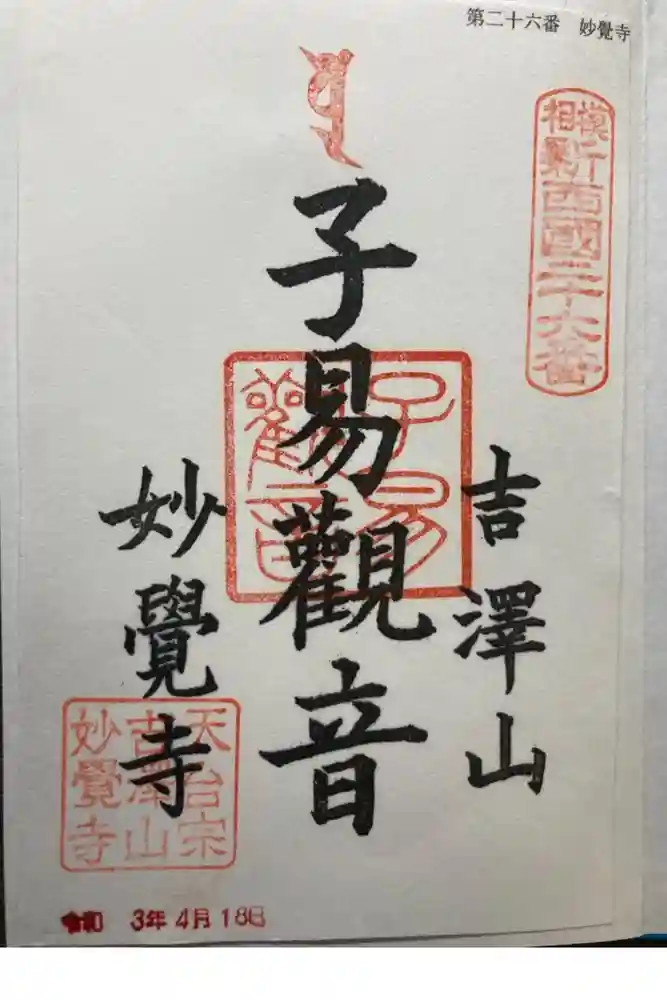 第二十六番　妙覺寺
相模
新西國二十六番
吉澤山
子易觀音
子易
觀音
妙覺寺
天台宗
吉澤山
妙覺寺
令和　3年 4月 18日